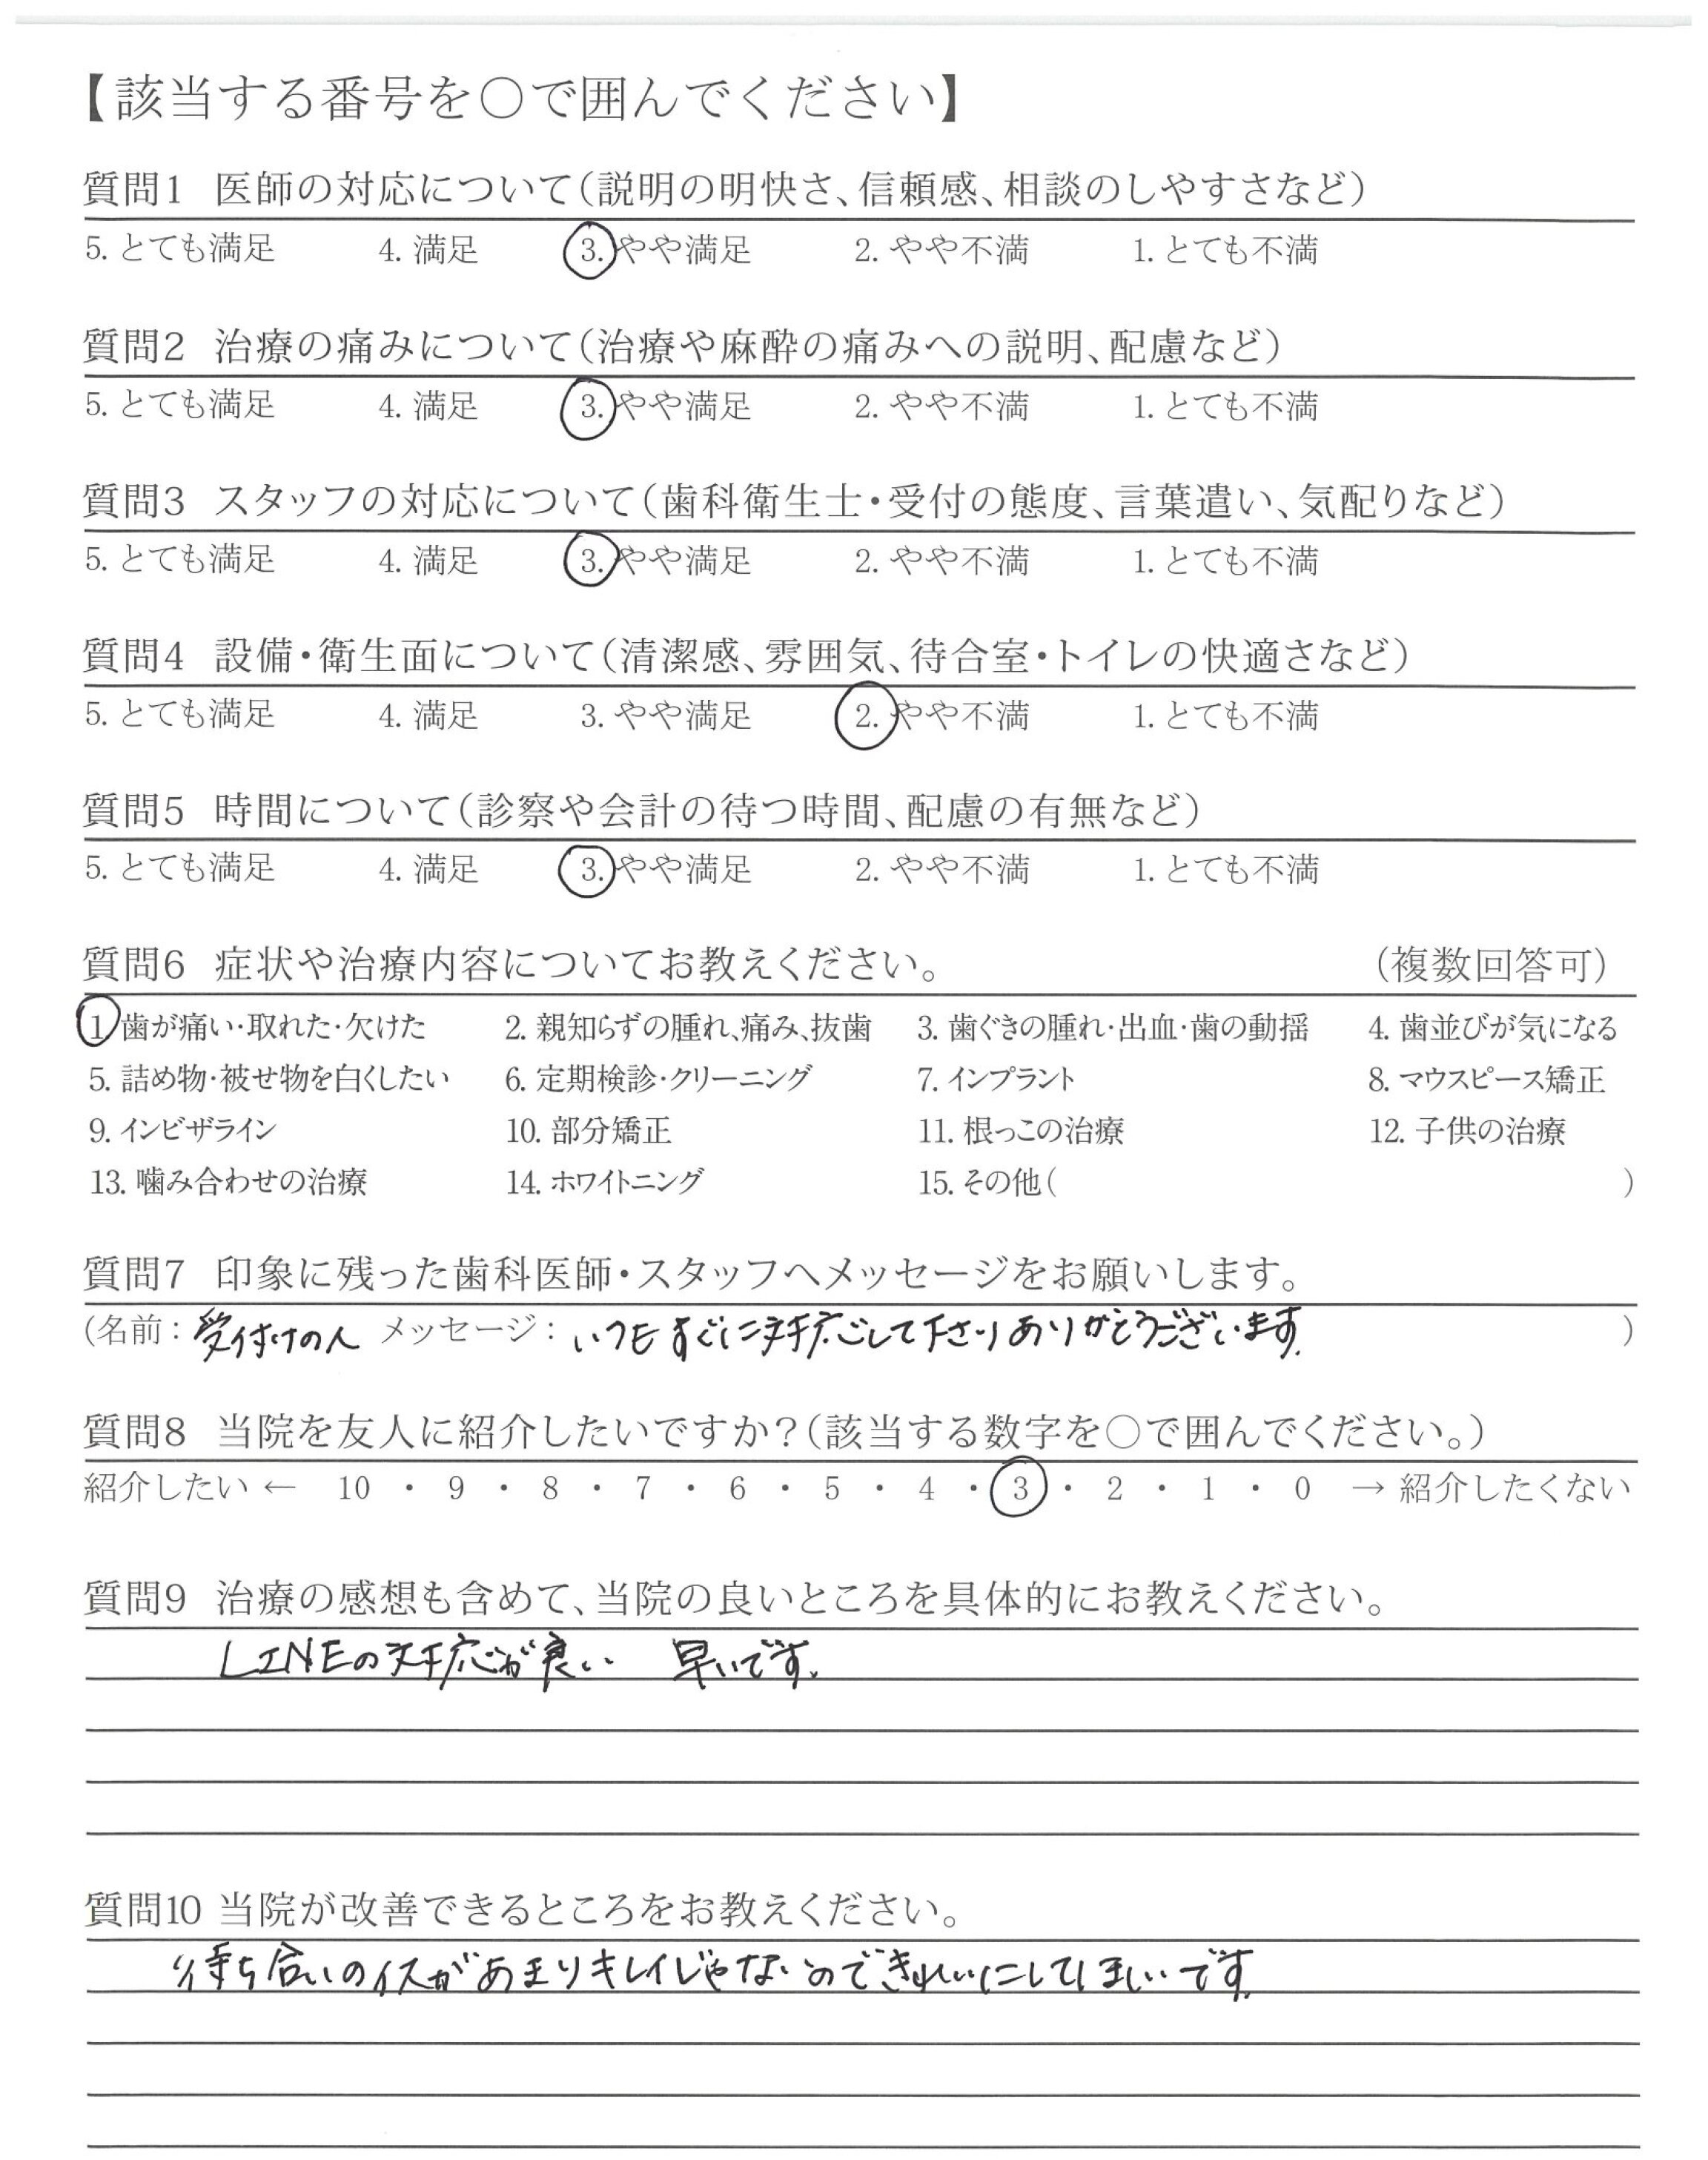 【該当する番号を○で囲んでください】
質問1 医師の対応について(説明の明快さ、信頼感、相談のしやすさなど)
5. とても満足 4. 満足 3. やや満足 2. やや不満 1. とても不満
質問2 治療の痛みについて(治療や麻酔の痛みへの説明、配慮など)
5. とても満足 4. 満足 3. やや満足 2. やや不満 1. とても不満
質問3 スタッフの対応について(歯科衛生士・受付の態度、言葉遣い、気配りなど)
5. とても満足 4. 満足 3. やや満足 2. やや不満 1. とても不満
質問4 設備・衛生面について(清潔感、雰囲気、待合室・トイレの快適さなど)
5. とても満足 4. 満足 3. やや満足 2. やや不満 1. とても不満
質問5 時間について(診察や会計の待つ時間、配慮の有無など)
5. とても満足 4. 満足 3. やや満足 2. やや不満 1. とても不満
質問6 症状や治療内容についてお教えください。 (複数回答可)
1 歯が痛い・取れた・欠けた 2. 親知らずの腫れ、痛み、抜歯 3. 歯ぐきの腫れ・出血・歯の動揺 4. 歯並びが気になる
5. 詰め物・被せ物を白くしたい 6. 定期検診・クリーニング 7. インプラント 8. マウスピース矯正
9. インビザライン 10. 部分矯正 11. 根っこの治療 12. 子供の治療
13. 噛み合わせの治療 14. ホワイトニング 15. その他( )
質問7 印象に残った歯科医師・スタッフへメッセージをお願いします。
(名前: 受付けの人 メッセージ: いつもすぐに対応して下さりありがとうございます。 )
質問8 当院を友人に紹介したいですか?(該当する数字を○で囲んでください。)
紹介したい ← 10 ・ 9 ・ 8 ・ 7 ・ 6 ・ 5 ・ 4 ・ 3 ・ 2 ・ 1 ・ 0 → 紹介したくない
質問9 治療の感想も含めて、当院の良いところを具体的にお教えください。
LINEの対応が良い 早いです。
質問10 当院が改善できるところをお教えください。
待ち合いのイスがあまりキレイじゃないのできれいにしてほしいです。